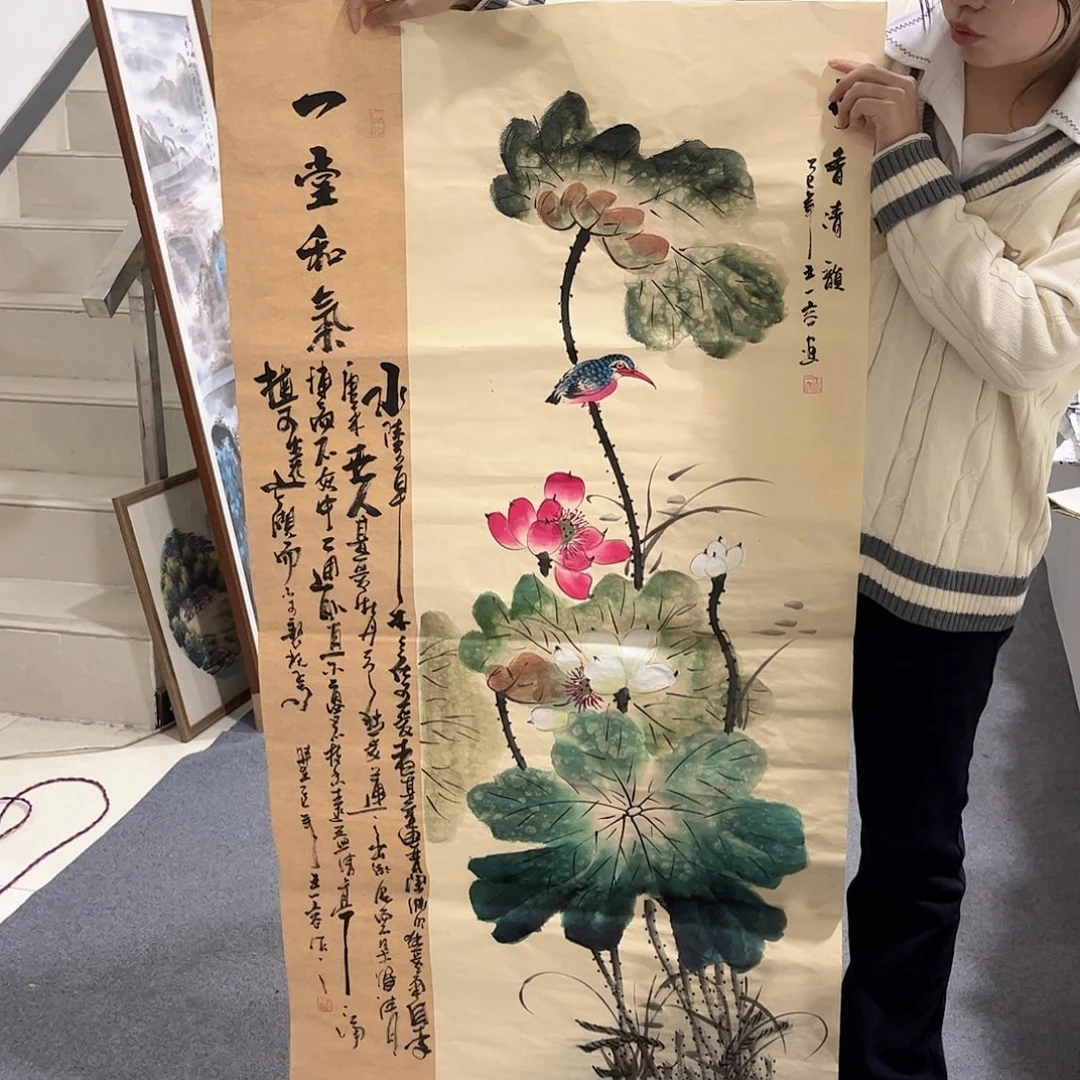 香清韻
乙巳年王一容画
一堂和氣
水陸草木之花可愛者甚蕃晉陶淵明獨愛菊自李
唐来世人甚愛牡丹予獨愛蓮之出淤泥而不染濯清
漣而不妖中通外直不蔓不枝香遠益清亭亭淨
植可遠觀而不可褻玩焉